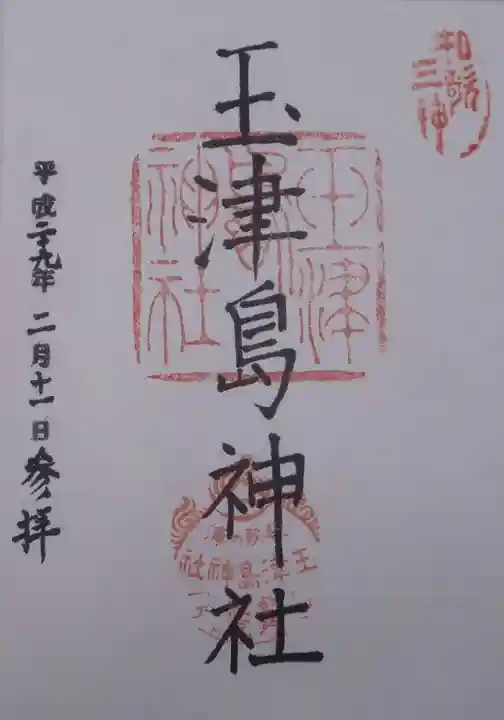 和歌三神
玉津島神社
玉津島神社
玉津島神社
平成二十九年二月十一日参拝